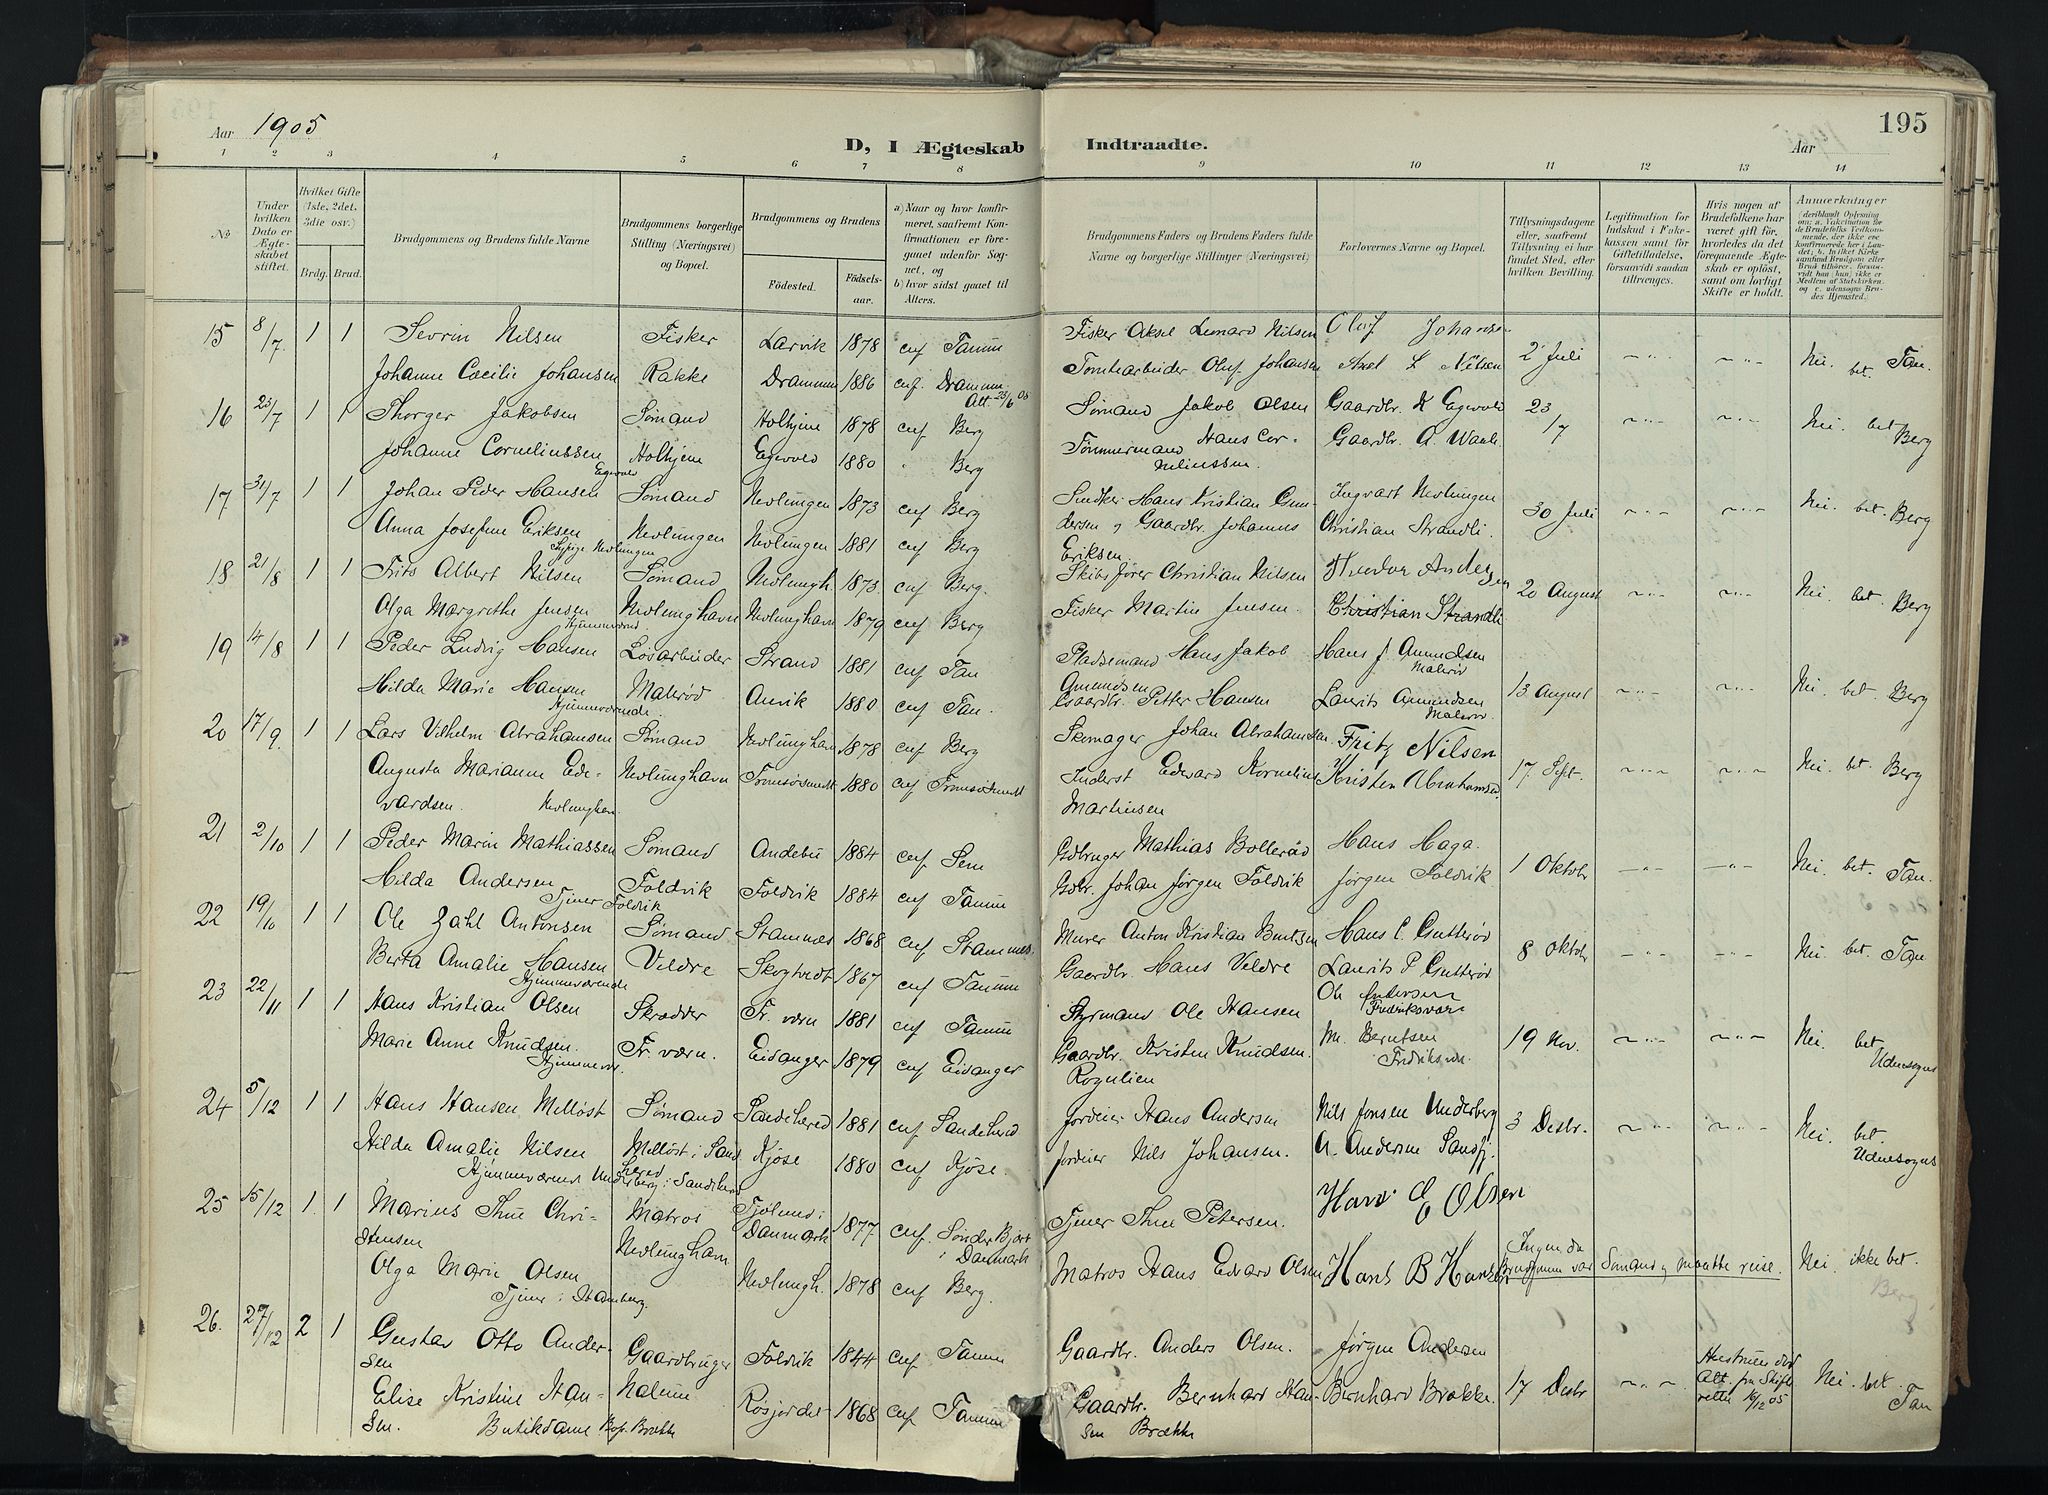 Aar 1905
D, I Ægteskab Indtraadte.
Aar
195
1 2 3 4 5 6 7 8 9 10 11 12 13 14
No
Under hvilken Dato er Ægteskabet stiftet.
Hvilket Gifte (1ste, 2det, 3die osv.)
Brdg. Brud.
Brudgommens og Brudens fulde Navne
Brudgommens borgerlige Stilling (Næringsvei) og Bopæl.
Brudgommens og Brudens
Fødested. Fødsels-aar.
a) Naar og hvor konfirmeret, saafremt Konfirmationen er foregaaet udenfor Sognet, og
b) hvor sidst gaaet til Alters.
Brudgommens Faders og Brudens Faders fulde Navne og borgerlige Stillinger (Næringsvei)
Forlovernes Navne og Bopæl.
Tillysningsdagene eller, saafremt Tillysning ei har fundet Sted, efter hvilken Bevilling.
Legitimation for Indskud i Enkekassen samt for Giftetilladelse, forsaavidt saadan tiltrænges.
Hvis nogen af Brudefolkene har været gift før, hvorledes da det foregaaende Ægteskab er opløst, samt om lovligt Skifte er holdt.
Anmerkninger
15 8/7 1 1 Sevrin Nilsen Fisker Larvik 1878 cnf Tanum Fisker Aksel Leonard Nilsen Oluf Johansen 2 Juli Nei. bet. Tan.
Johanne Cæcilie Johansen Rakke Drammen 1886 cnf. Drammen Tomtearbeider Oluf Johansen Axel L Nilsen
Att. 23/6 05
16 23/7 1 1 Thorger Jakobsen Sømand Holhjem 1878 cnf Berg Sømand Jakob Olsen Gaardbr. K Egevold 23/7 Nei. bet Berg
Johanne Corneliussen Holhjem Egevold 1880 " Berg Tømmermand Hans Cor- Gaardbr. A.
Egevold neliussen.
17 31/7 1 1 Johan Peder Hansen Sømand Nevlungen 1873 cnf Berg Hans Kristian Gun- Ingvart Nevlungen 30 Juli Nei. bet. Berg
Anna Josefine Eriksen Nevlungen Nevlungen 1881 cnf Berg dersen og Gaardbr. Johannes Christian Strandli.
Sypige Nevlungen Eriksen.
18 21/8 1 1 Frits Albert Nilsen Sømand Nevlungh. 1873. cnf Berg. Skibsfører Christian Nilsen Andersen 20 August Nei bet. Berg
Olga Margrethe Jensen Nevlunghavn Nevlunghavn 1879 cnf Berg Fisker Martin Jensen. Christian Strandli
Hjemmeværend
19 14/8 1 1 Peder Ludvig Hansen Losarbeider Strand 1881 cnf Tan Pladsemand Hans Jakob Hans J. Amundsen 13 August Nei. bet. Berg
Malerød
Hilda Marie Hansen Malerød Anvik 1880 cnf Tan. Amundsen Gaardbr. Petter Hansen Laurits Amundsen
Hjemmeværende. Malerød.
20 17/9. 1 1 Lars Vilhelm Abrahamsen Sømand Nevlunghavn 1878 cnf Berg Skomager Johan Abrahamsen Fritz Nilsen 17 Sept. Nei. bet. Berg
Augusta Marianne Ede- Nevlunghavn Tromsøsundet 1880 cnf Tromsøsundet Inderst Edvard Kornelius Kristen Abrahamsen
vardsen. Nevlunghavn Martinsen
21 2/10 1 1 Peder Marin Mathiassen Sømand Andebu 1884 cnf. Sem Gdbruger Mathias Bollerød Hans Haga. 1 Oktobr Nei. bet. Tan.
Hilda Andersen Foldvik Foldvik 1884 cnf Tanum Gdbr. Johan Jørgen Foldvik Jørgen Foldvik
Tjener Foldvik
22 19/10 1 1 Ole Zahl Antonsen Sømand Stamnes 1868 cnf Stamnes. Murer Anton Kristian Hans C. Gutterød 8 Oktobr Nei bet. Tan
Berta Amalie Hansen Veldre Skogtvedt 1867 cnf Tanum Gaardbr. Hans Veldre Laurits P Gutterød
Hjemmeværende
23 22/11 1 1 Hans Kristian Olsen Skrædder Fr. værn 1881 cnf Tanum Styrmand Ole Hansen Ole Andersen Fredriksværn 19 Nov. Nei. bet. Udensogns
Marie Anne Knudsen. Fr. værn. Eidanger 1879 cnf Eidanger Gaardbr. Kristen Knudsen. M. Berntsen Fredriksvn.
Hjemmevær. Rognlien
24 5/12 1 1 Hans Hansen Melløst Sømand Sandeherred 1881 cnf Sandeherred Jordeier Hans Andersen Nils Jensen Underberg 3 Desbr. Nei. bet. Udensogns
Hilda Amalie Nilsen Melløst i Sande Kjøse 1880 cnf Kjøse. Jordeier Nils Johansen. A. Andersen Sandfj.
herred
Hjemmeværende Underberg i Sandeherred
25 15/12 1 1 Marius Thue Chri- Matros Danmark 1877 cnf. Sønder Bjert Tjener Thue Petersen. Hans E Olsen
stensen Nevlunghavn i Danmark
Olga Marie Olsen Nevlungh. 1878 cnf Berg. Matros Hans Edvard Olsen Hans B Hansen Ingen da Brudgommen var Sømand og maatte reise. Nei. ikke bet. Berg
Tjener i Hamburg.
26. 27/12 2 1 Gustav Otto Ander- Gaardbruger Foldvik 1844 cnf Tanum Gaardbr. Anders Olsen. Jørgen Andersen 17 Desbr Hustruen død Att. fra Skifteretten 16/12 05 Nei. bet. Tan
sen
Elise Kristine Han- Nalum Rosjordet 1868 cnf Tanum Gaardbr. Bernhard Han- Bernhard Brække.
sen. Butikdame Bop. Brække sen Brække